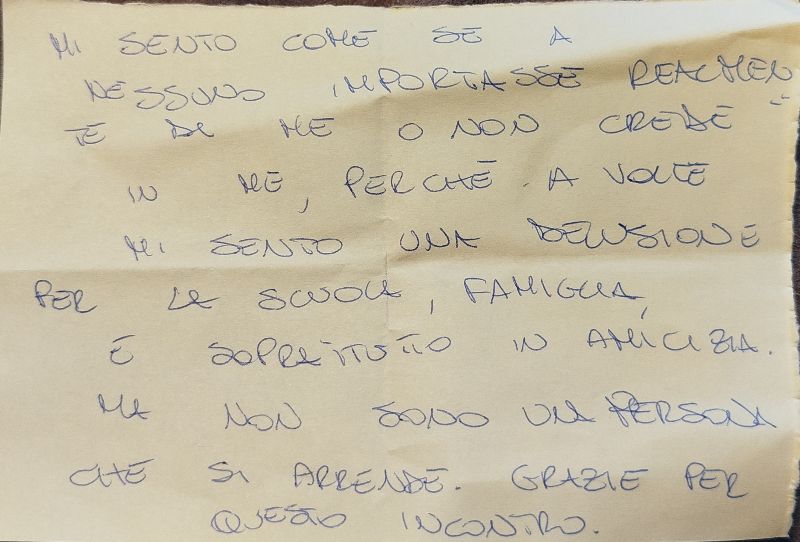 MI SENTO COME SE A
NESSUNO IMPORTASSE REALMEN
TE DI ME O NON CREDE
IN ME, PERCHÉ A VOLTE
MI SENTO UNA DELUSIONE
PER LA SCUOLA, FAMIGLIA,
E SOPRATTUTTO IN AMICIZIA.
MA NON SONO UNA PERSONA
CHE SI ARRENDE. GRAZIE PER
QUESTO INCONTRO.